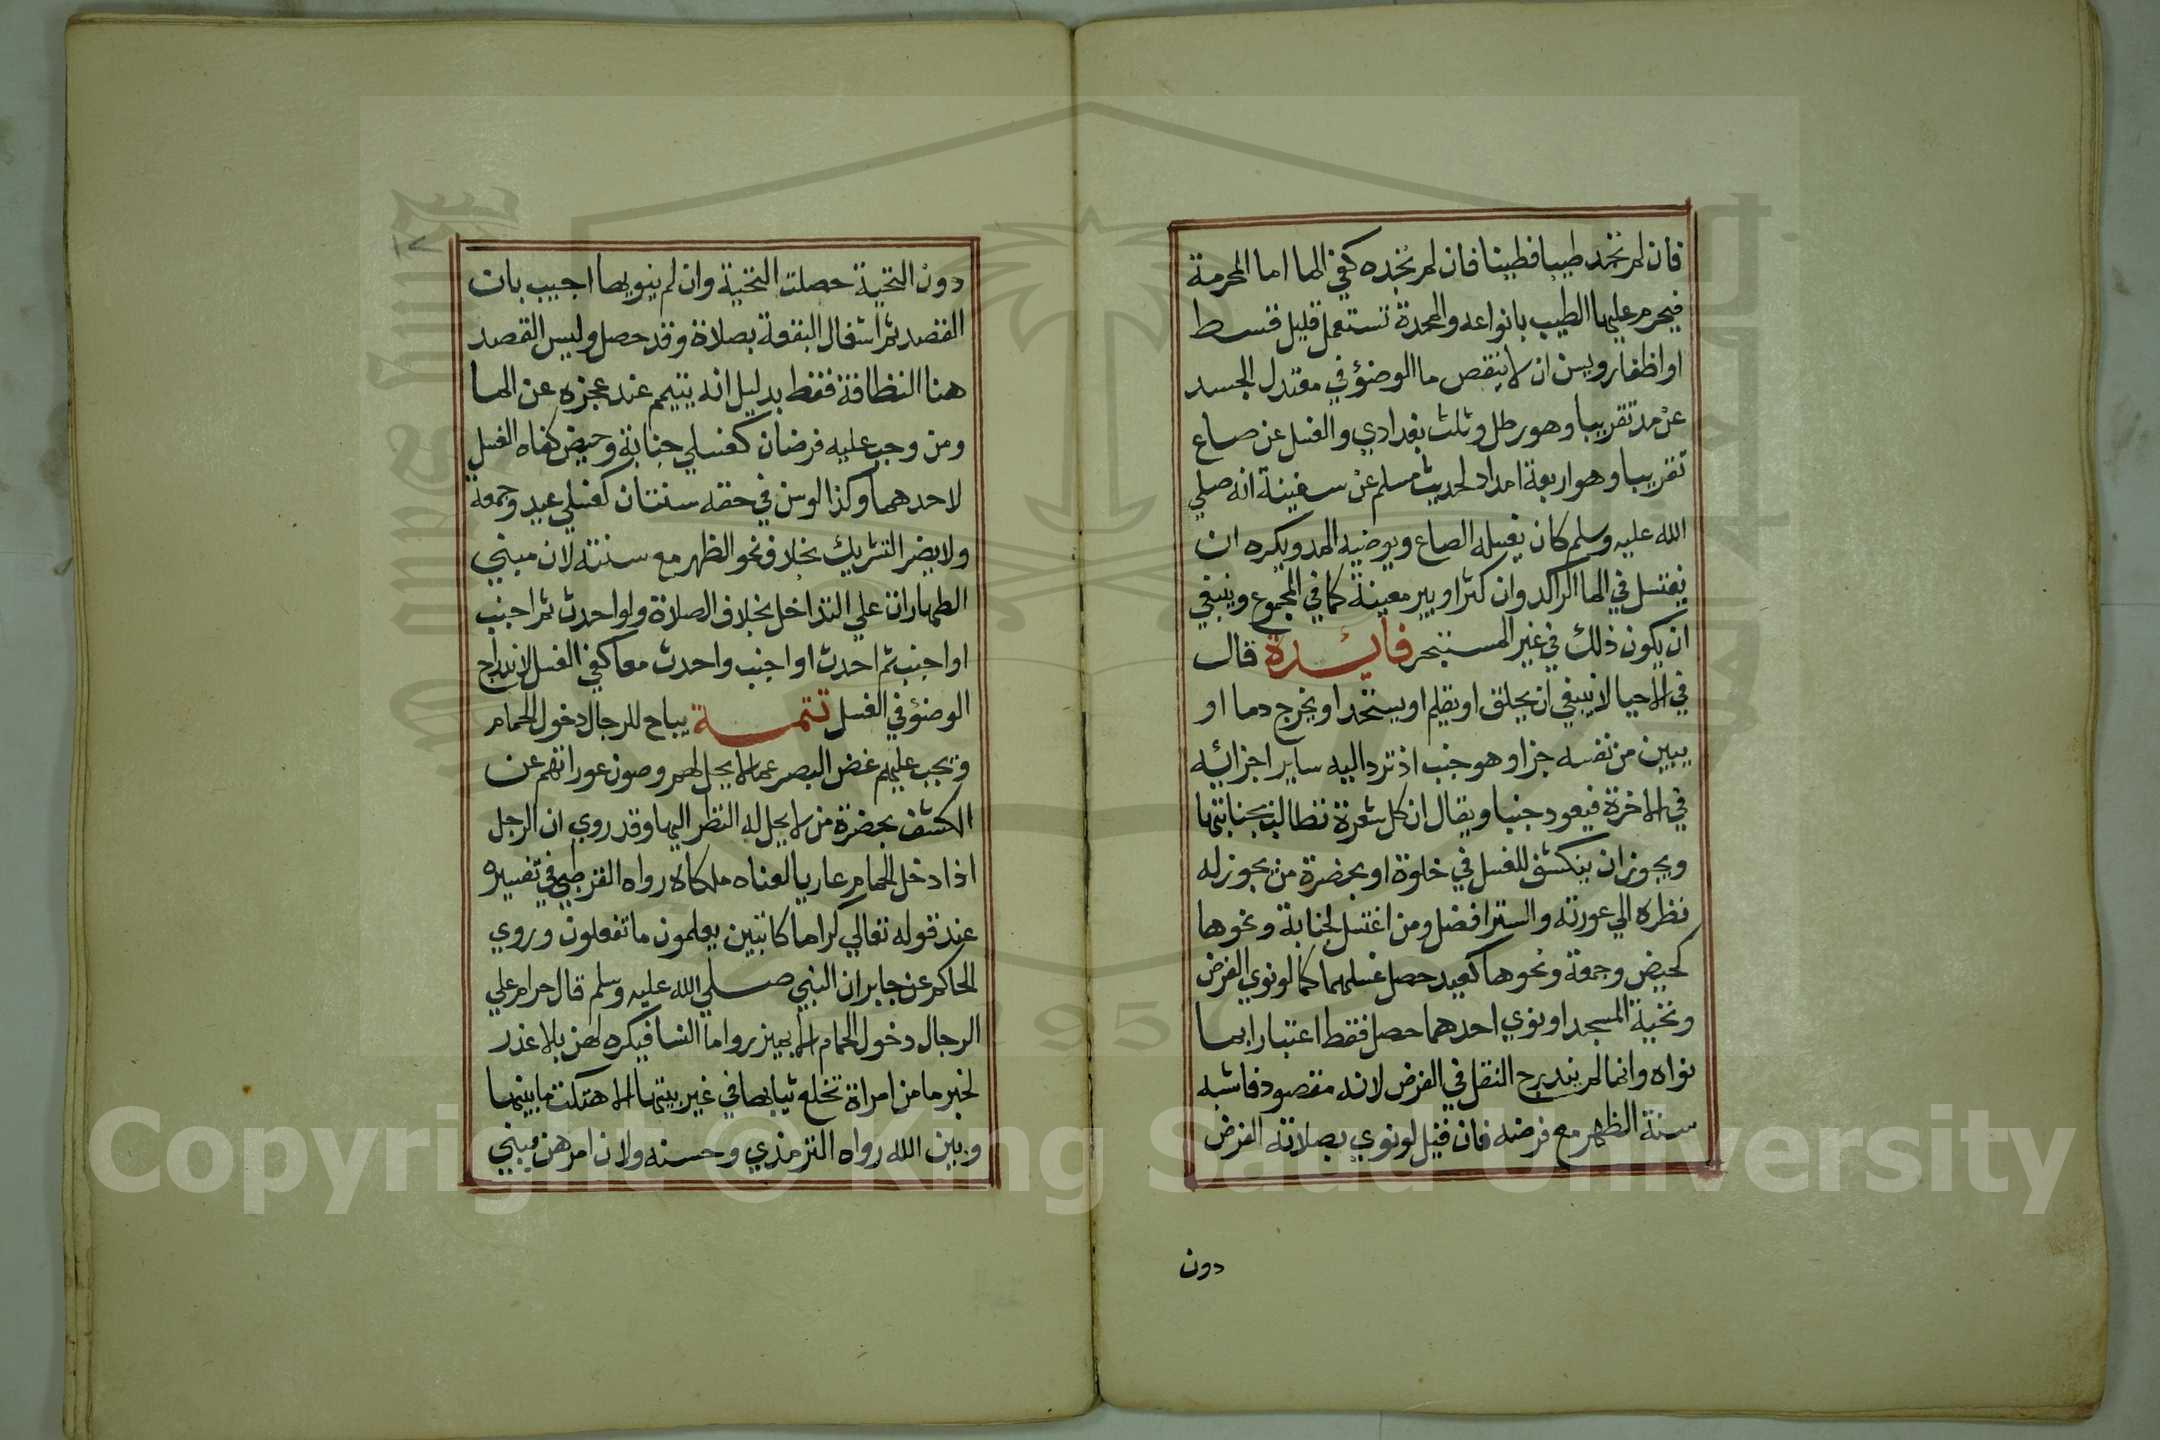 فان لم تجد طيبا فطينا فان لم تجده كفي الما اما المحرمة
فيحرم عليها الطيب بانواعه والمحدة تستعمل قليل قسط
او اظفار ويسن ان لا ينقص ما الوضؤ في معتدل الجسد
عن مد تقريبا وهو رطل وثلث بغدادي والغسل عن صاع
تقريبا وهو اربعة امداد لحديث مسلم عن سفينة انه صلي
الله عليه وسلم كان يغسله الصاع ويوضيه المد ويكره ان
يغتسل في الما الراكد وان كثر او بير معينة كما في المجموع وينبغي
ان يكون ذلك في غير المستبحر فايدة قال
في الاحيا لا ينبغي ان يحلق او يقلم او يستحد او يخرج دما او
يبين من نفسه جزا وهو جنب اذ ترد اليه ساير اجزائه
في الاخرة فيعود جنبا ويقال ان كل شعرة تطالبه بجنابتها
ويجوز ان ينكشف للغسل في خلوة او بحضرة من يجوز له
نظره الي عورته والستر افضل ومن اغتسل لجنابة ونحوها
كحيض وجمعة ونحوها كعيد حصل غسلهما كما لو نوي الفرض
وتحية المسجد او نوي احدهما حصل فقط اعتبارا بما
نواه وانما لم يندرج النفل في الفرض لانه مقصود فاشبه
سنة الظهر مع فرضه فان قيل لو نوي بصلاته الفرض
دون
١٧
دون التحية حصلت التحية وان لم ينويها اجيب بان
القصد ثم اشغال البقعة بصلاة وقد حصل وليس القصد
هنا النظافة فقط بدليل انه يتيمم عند عجزه عن الما
ومن وجب عليه فرضان كغسلي جنابة وحيض كفاه الغسل
لاحدهما وكذا لو سن في حقه سنتان كغسلي عيد وجمعة
ولا يضر التشريك بخلاف نحو الظهر مع سنته لان مبني
الطهارات علي التداخل بخلاف الصلاة ولو احدث ثم اجنب
او اجنب ثم احدث او اجنب واحدث معا كفي الغسل لاندراج
الوضؤ في الغسل تتمة يباح للرجال دخول الحمام
ويجب عليهم غض البصر عما لا يحل لهم وصون عوراتهم عن
الكشف بحضرة من لا يحل له النظر اليها وقد روي ان الرجل
اذا دخل الحمام عاريا لعناه ملكاه رواه القرطبي في تفسيره
عند قوله تعالي كراما كاتبين يعلمون ما تفعلون وروي
الحاكم عن جابر ان النبي صلي الله عليه وسلم قال حرام علي
الرجال دخول الحمام الا بميزر واما النسا فيكره لهن بلا عذر
لخبر ما من امراة تخلع ثيابها في غير بيتها الا هتكت ما بينها
وبين الله رواه الترمذي وحسنه ولان امرهن مبني
Copyright © King Saud University